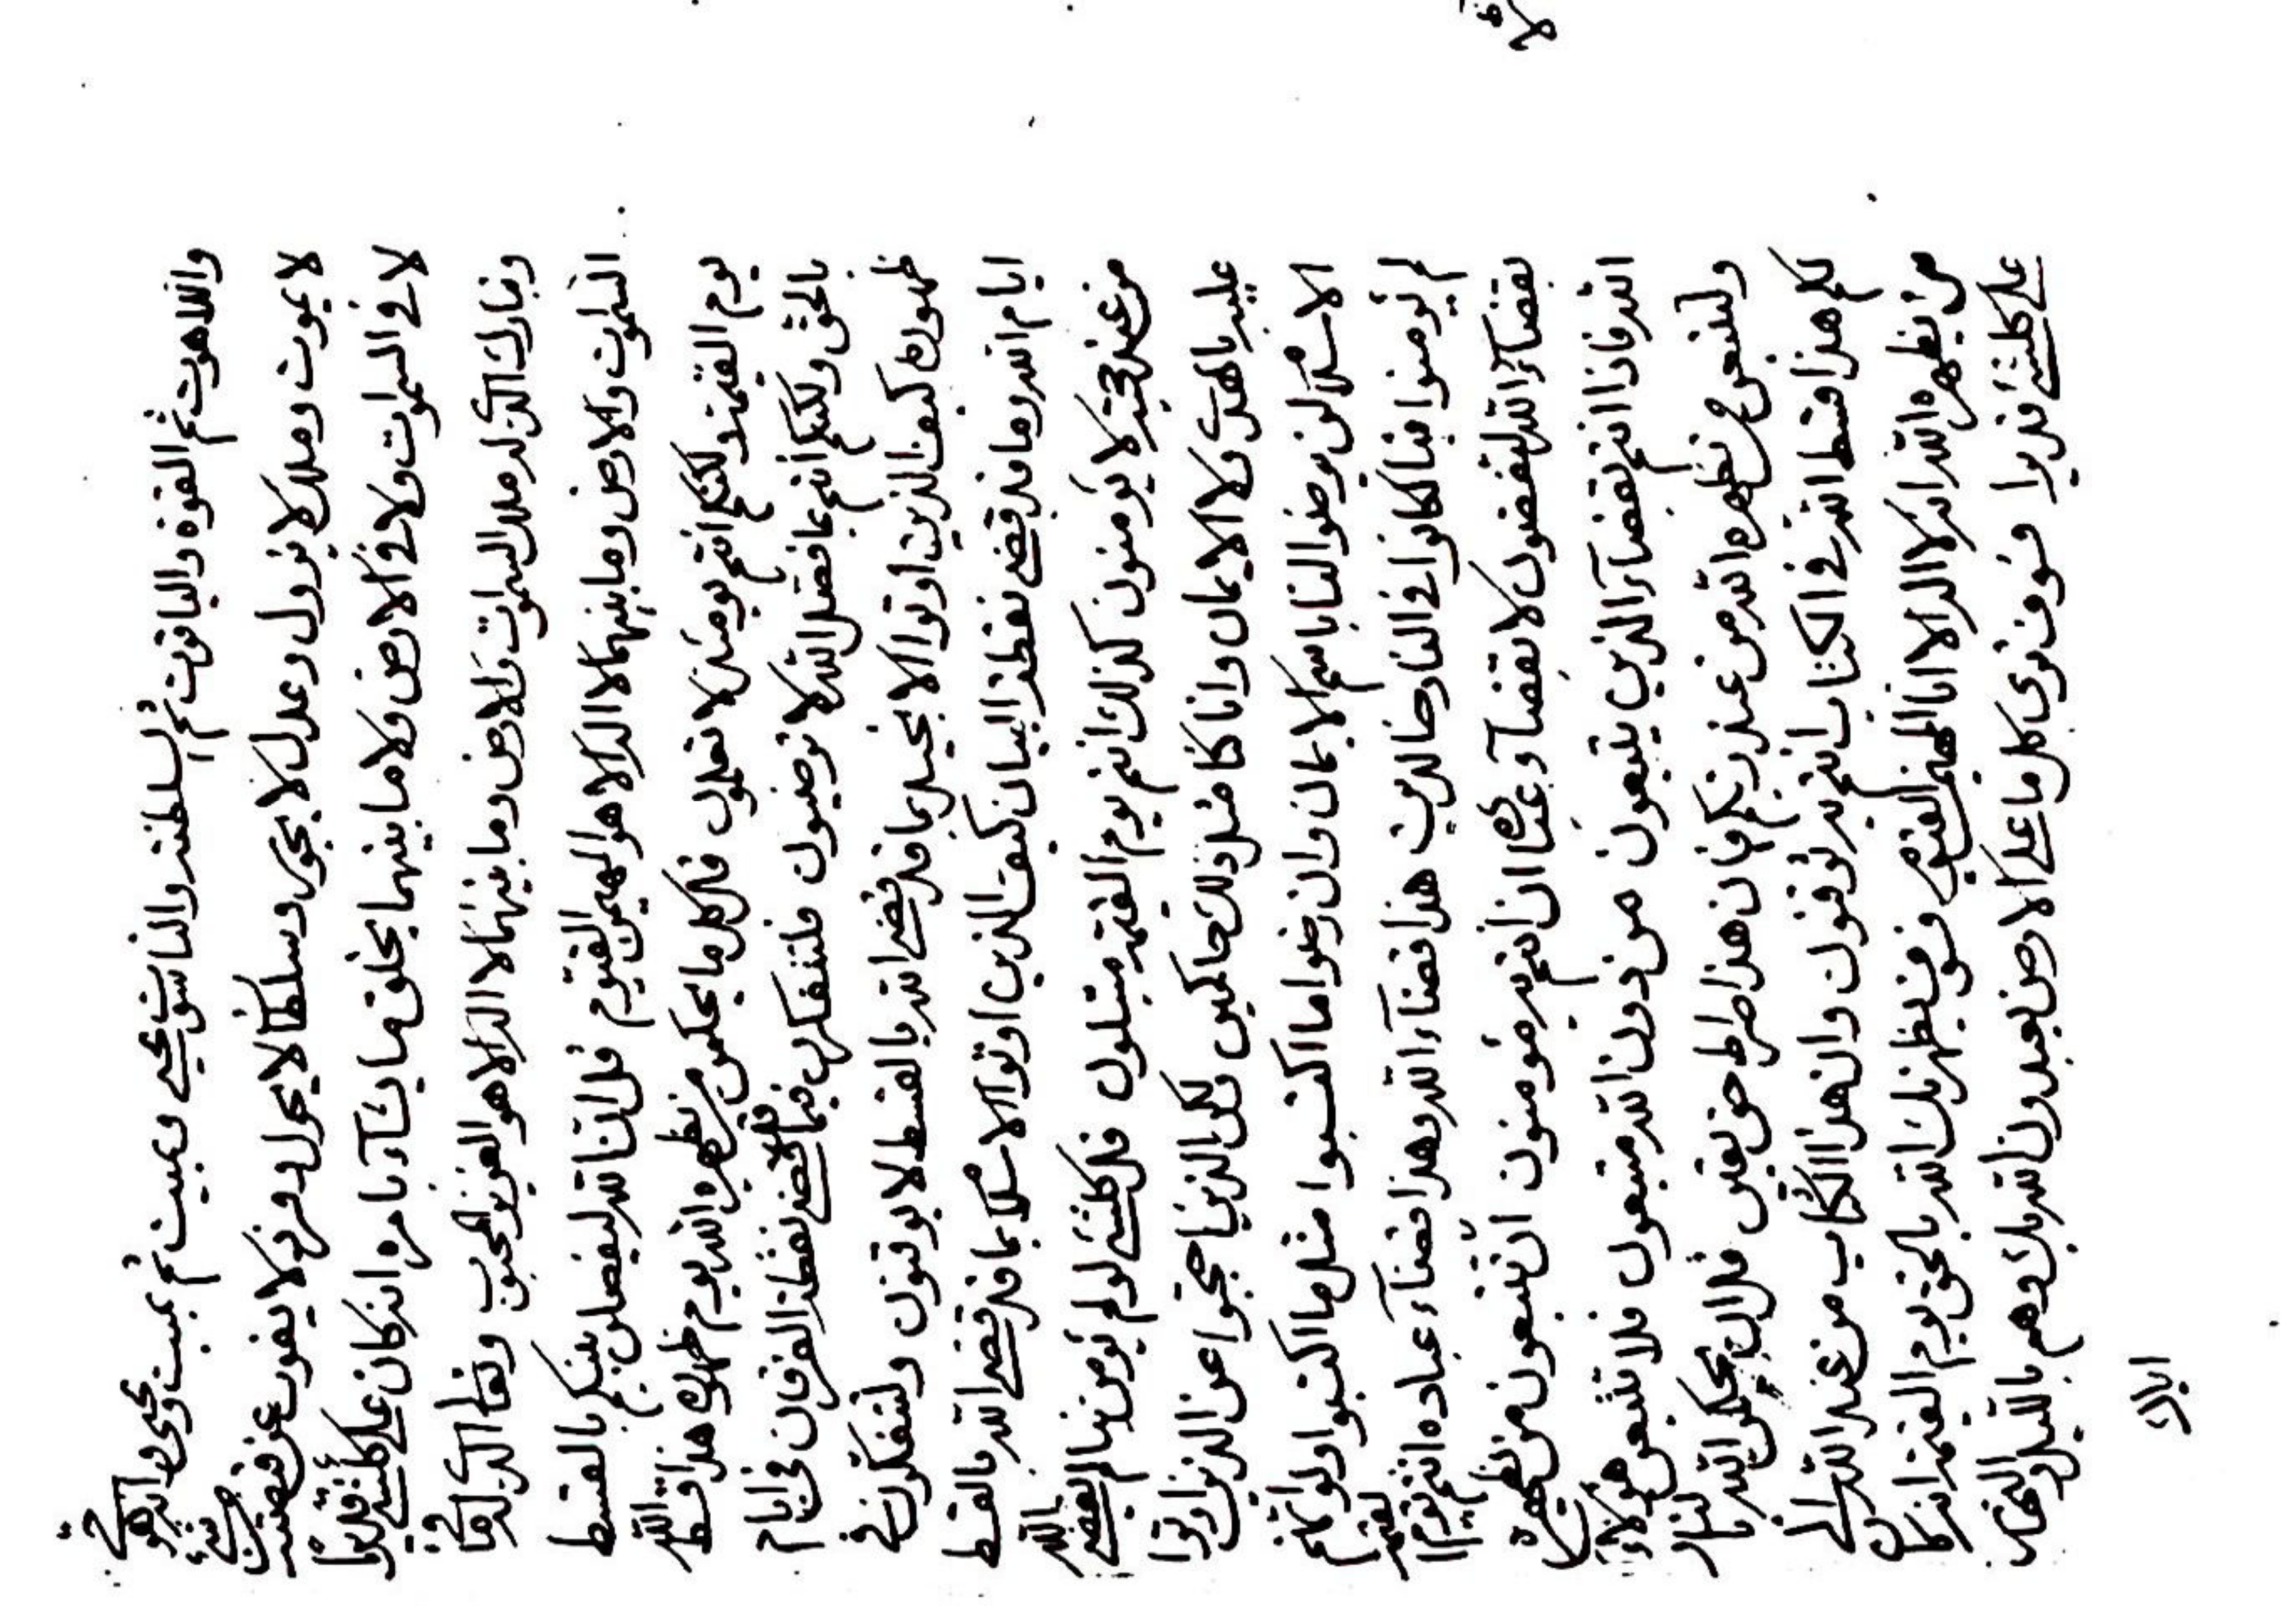 واللاهوت ثم القوة والياقوت ثم السلطنة والناسوت يحيى ويميت ثم يميت ويحيى وانه هو حى
لا يموت وملك لا يزول وعدل لا يجور وسلطان لا يحول وفرد لا يفوت عن قبضته من شىء
لا فى السموات ولا فى الارض ولا ما بينهما يخلق ما يشآء بامره انه كان على كلشىء قديرا
وتبارك الذى له ملك السموات والارض وما بينهما لا اله الا هو العزيز المحبوب وتعالى الذى له ما فى
السموات والارض وما بينهما لا اله الا هو المهيمن القيوم قل ان الله ليفصلن بينكم بالقسط
يوم القيمة ولكنكم انتم يومئذ لا تعلمون قل كل ما يحكمن من يظهره الله يوم ظهوره هذا قسط الله
بالحق ولكنكم انتم بما فصل الله لا ترضيون فلتتفكرن فيما قد قضى نقطة الفرقان فى ايام
ظهوره كيف الذين اوتوا الانجيل بما قد قضى الله بالقسط لا يوقنون ولتتفكرن فى
ايام الله وما قد قضى نقطة البيان كيف الذين اوتوا الاسلام بما قد قضى الله بالقسط
من عند حجته لا يؤمنون كذلك انتم يوم القيمة مبتلون قل كلشىء لو لم يؤمن بنا لم يقضى بالله
عليه بالهدى ولا الايمان وانا كنا مثل ذلك حاكمين لكن الذين احتجبوا عن الذين اوتوا
الاسلام لن يرضوا لنا باسم الايمان وان رضوا ما اكتسبوا مثل ما اكتسبوا ولو انهم
لم يؤمنوا فينا لكانوا فى النار خالدين هذا قضآء الله وهذا قضآء عباده انتم يوم القيمة
بقضآء الله لتقضون لا بقضآء غير الله ان انتم به مؤمنون ان تتبعون من يظهره
الله فاذا انتم بقضآء الذين يتبعون من دون الله متبعون فلا تتبعن هؤلاء
ولتتبعن من يظهره الله من عند ربكم فان هذا صراط حق يقين قل ان يحكمن الله بالنار
لكم هذا قسط الله فى الكتاب انتم به توقنون وان هذا الكتاب من عند الله الى
من يظهره الله انه لا اله الا انا المهيمن القيوم وسوف يظهرنك الله بالحق يوم القيمة انه كان
على كلشىء قديرا وسوف ترى كل ما على الارض يعبدون الله ربك وهم بالليل والنهار